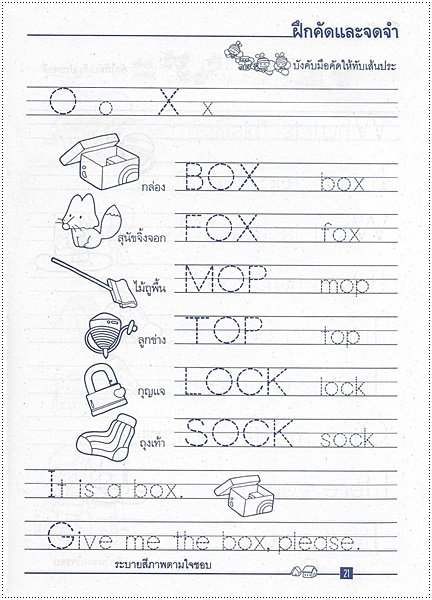 ฝึกคัดและจดจำ
บังคับมือคัดให้ทับเส้นประ
O o X x
กล่อง BOX box
สุนัขจิ้งจอก FOX fox
ไม้ถูพื้น MOP mop
ลูกข่าง TOP top
กุญแจ LOCK lock
ถุงเท้า SOCK sock
It is a box.
Give me the box, please.
ระบายสีภาพตามใจชอบ
21